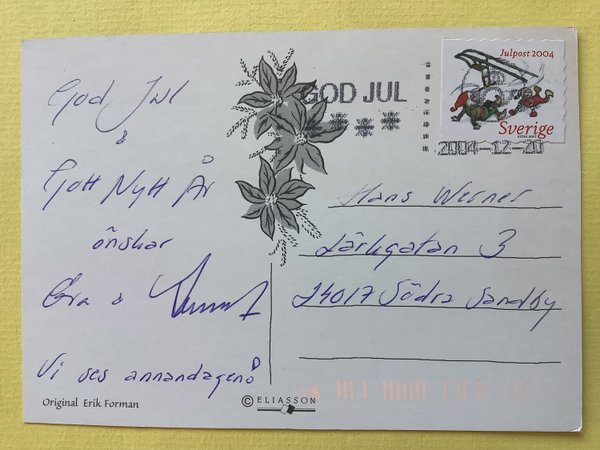 God Jul
&
Gott Nytt År
önskar
Eva &
Vi ses annandagen!
Original Erik Forman
© ELIASSON
GOD JUL
Julpost 2004
Sverige
2004-12-20
Hans Werner
Lärkgatan 3
24017 Södra Sandby